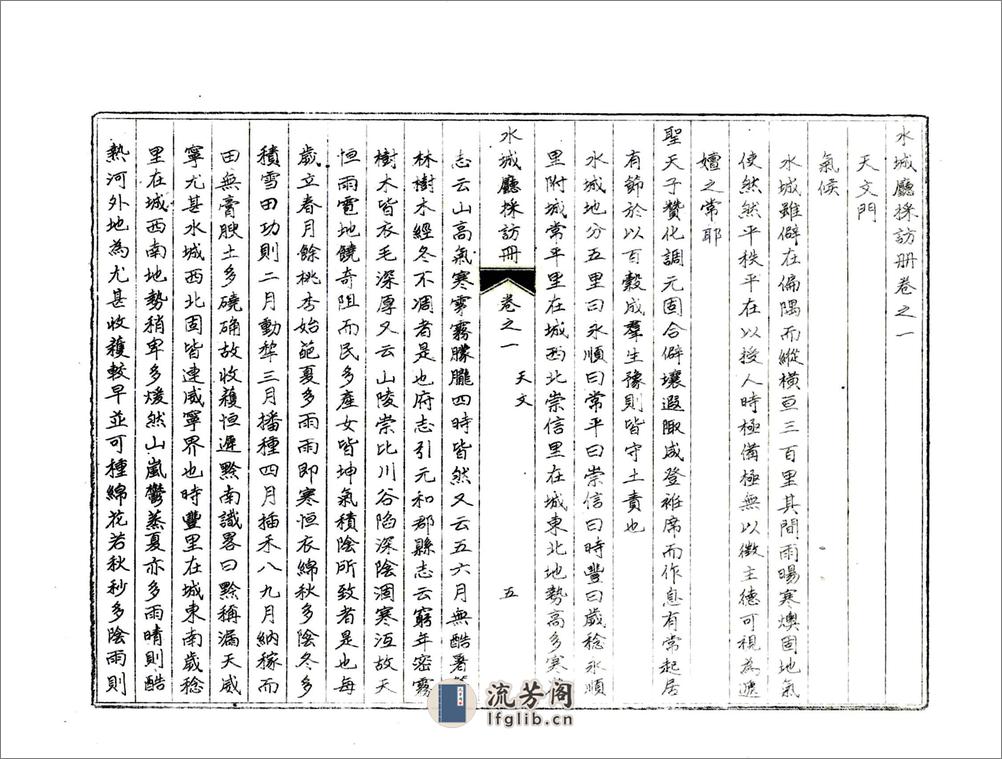 水城廳採訪冊卷之一
天文門
氣候
水城雖僻在偏隅而縱橫亘三百里其間雨暘寒燠固地氣
使然然平秩平在以授人時極備極無以徵主德可視為遞
嬗之常耶
聖天子贊化調元固合僻壤遐陬咸登袵席而作息有常起居
有節於以百穀成羣生豫則皆守土責也
水城地分五里曰永順曰常平曰崇信曰時豐曰歲稔永順
里附城常平里在城西北崇信里在城東北地勢高多寒
水城廳採訪冊 卷之一 天文 五
志云山高氣寒霧朦朧四時皆然又云五六月無酷暑
林樹木經冬不凋者是也府志引元和郡縣志云窮年密霧
樹木皆衣毛深厚又云山陵崇比川谷陷深陰涸寒沍故天
恒雨雹地饒奇阻而民多產女皆坤氣積陰所致者是也每
歲立春月餘桃杏始葩夏多雨雨即寒恒衣綿秋多陰冬多
積雪田功則二月動犂三月播種四月插禾八九月納稼而
田無膏腴土多磽确故收穫恒遲黔南識畧曰黔稱漏天威
寧尤甚水城西北固皆連威寧界也時豐里在城東南歲稔
里在城西南地勢稍卑多煖然山嵐鬱蒸夏亦多雨晴則酷
熱河外地為尤甚收穫較早並可種綿花若秋秒多陰雨則
流芳阁
lfglib.cn